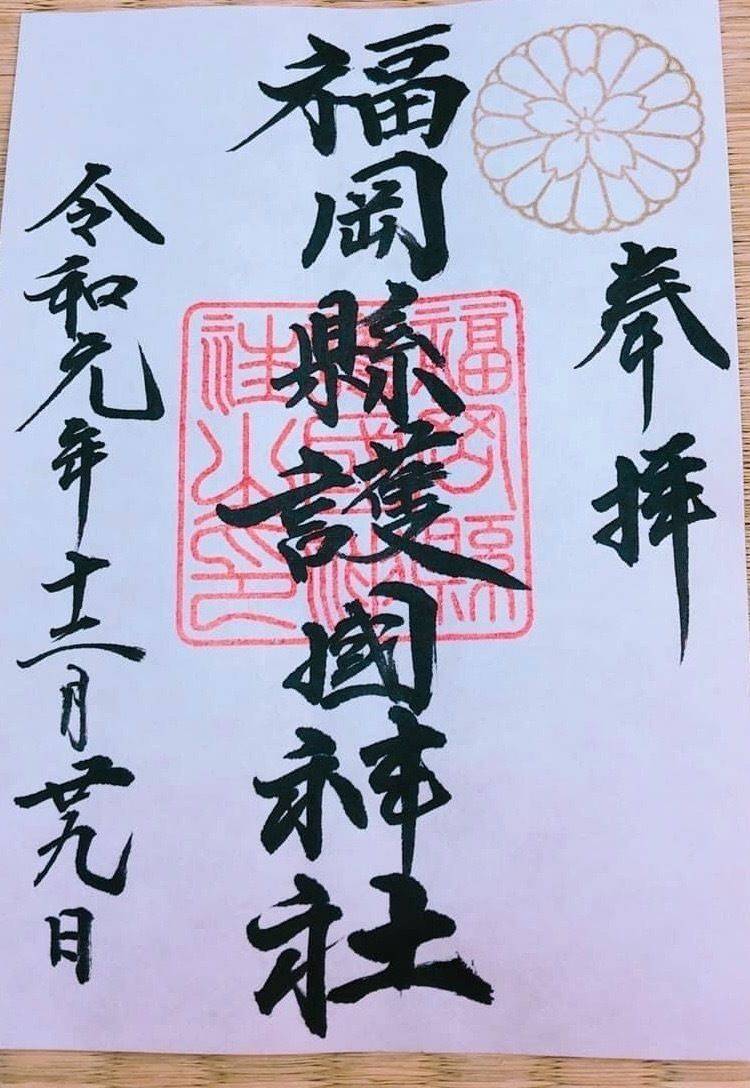 奉拝
福岡縣護國神社
福岡縣護國神社之印
令和元年十二月廿九日